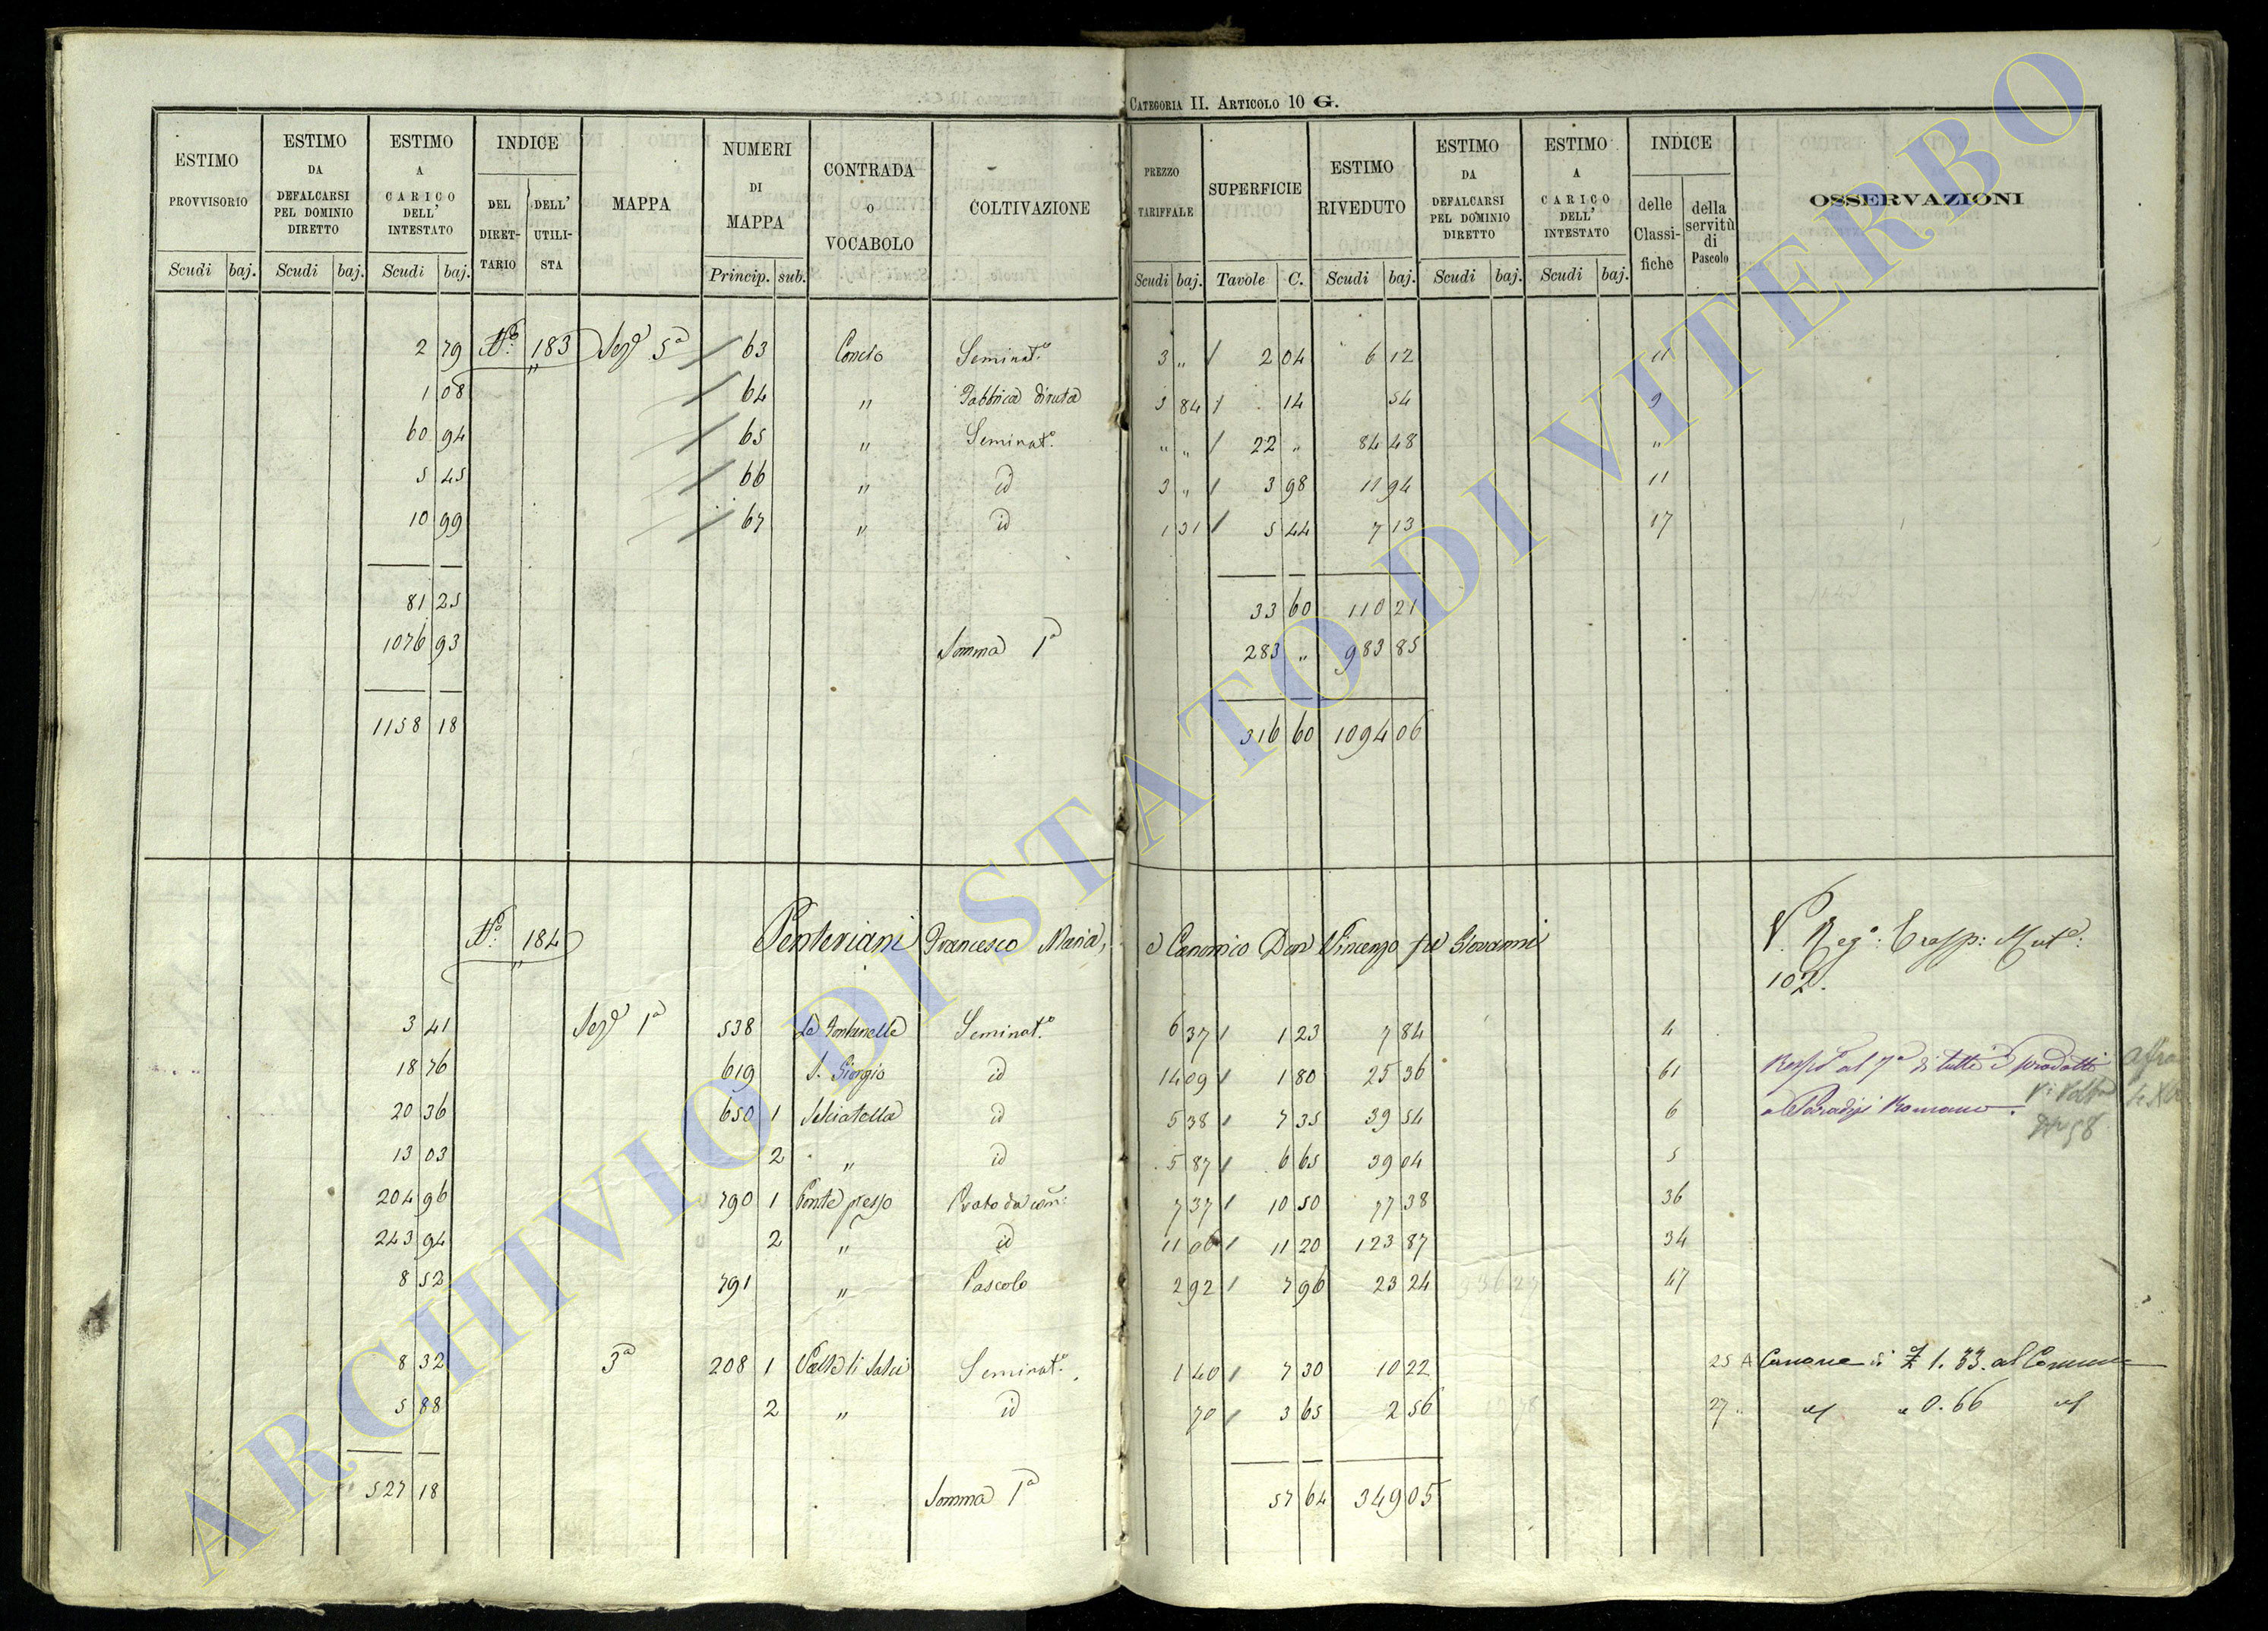 CATEGORIA II. ARTICOLO 10 G.
ESTIMO PROVVISORIO Scudi baj.
ESTIMO DA DEFALCARSI PEL DOMINIO DIRETTO Scudi baj.
ESTIMO A CARICO DELL' INTESTATO Scudi baj.
INDICE DEL DIRET-TARIO DELL' UTILI-STA
MAPPA
NUMERI DI MAPPA Princip. sub.
CONTRADA O VOCABOLO
COLTIVAZIONE
PREZZO TARIFFALE Scudi baj.
SUPERFICIE Tavole C.
ESTIMO RIVEDUTO Scudi baj.
ESTIMO DA DEFALCARSI PEL DOMINIO DIRETTO Scudi baj.
ESTIMO A CARICO DELL' INTESTATO Scudi baj.
INDICE delle Classi-fiche della servitù di Pascolo
OSSERVAZIONI
2 79 N.º 183 Sezº 5ª 63 Seminat.º 3 „ 2 04 6 12 11
1 08 64 „ Fabbrica diruta 3 84 14 54 9
60 94 65 „ Seminat.º „ „ 22 „ 84 48 „
5 45 66 „ id 3 „ 3 98 11 94 11
10 99 67 „ id 1 31 5 44 7 13 17
81 25 33 60 110 21
1076 93 Somma 1ª 283 „ 983 85
1158 18 316 60 1094 06
N.º 184 Penteriani Francesco Maria, e Canonico Don Vincenzo fu Giovanni V. Regº: Trasp: Mutº:
102.
3 41 Sezº 1ª 538 Le Fontanelle Seminat.º 6 37 1 23 7 84 4
18 76 619 S. Giorgio id 14 09 1 80 25 36 61 Rispº al 7º di tutti i prodotti
20 36 650 1 Selciatella id 5 38 7 35 39 54 6 a Paradisi Romano.
13 03 2 „ id 5 87 6 65 39 04 5
204 96 790 1 Ponte pesso Prato da 7 37 10 50 77 38 36
243 94 2 „ id 11 06 11 20 123 87 34
8 52 791 „ Pascolo 2 92 7 96 23 24 47
8 32 3ª 208 1 Valle li Salci Seminat.º 1 40 7 30 10 22 25 A Canone di 1.33. al Comune
5 88 2 „ id 70 3 65 2 56 27 „ 0.66
527 18 Somma 1ª 57 64 349 05
ARCHIVIO DI STATO DI VITERBO